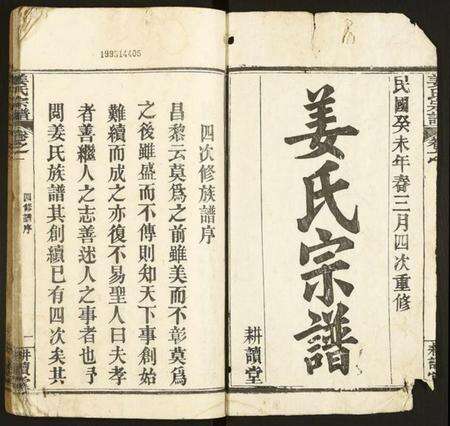 民國癸未年春三月四次重修
姜氏宗譜
耕讀堂
四次修族譜序
昌黎云莫爲之前雖美而不彰莫爲
之後雖盛而不傳則知天下事創始
難續而成之亦復不易聖人曰夫孝
者善繼人之志善述人之事者也予
閱姜氏族譜其創續已有四次矣其
姜氏宗譜
卷之一
四修譜序
一
耕讀堂